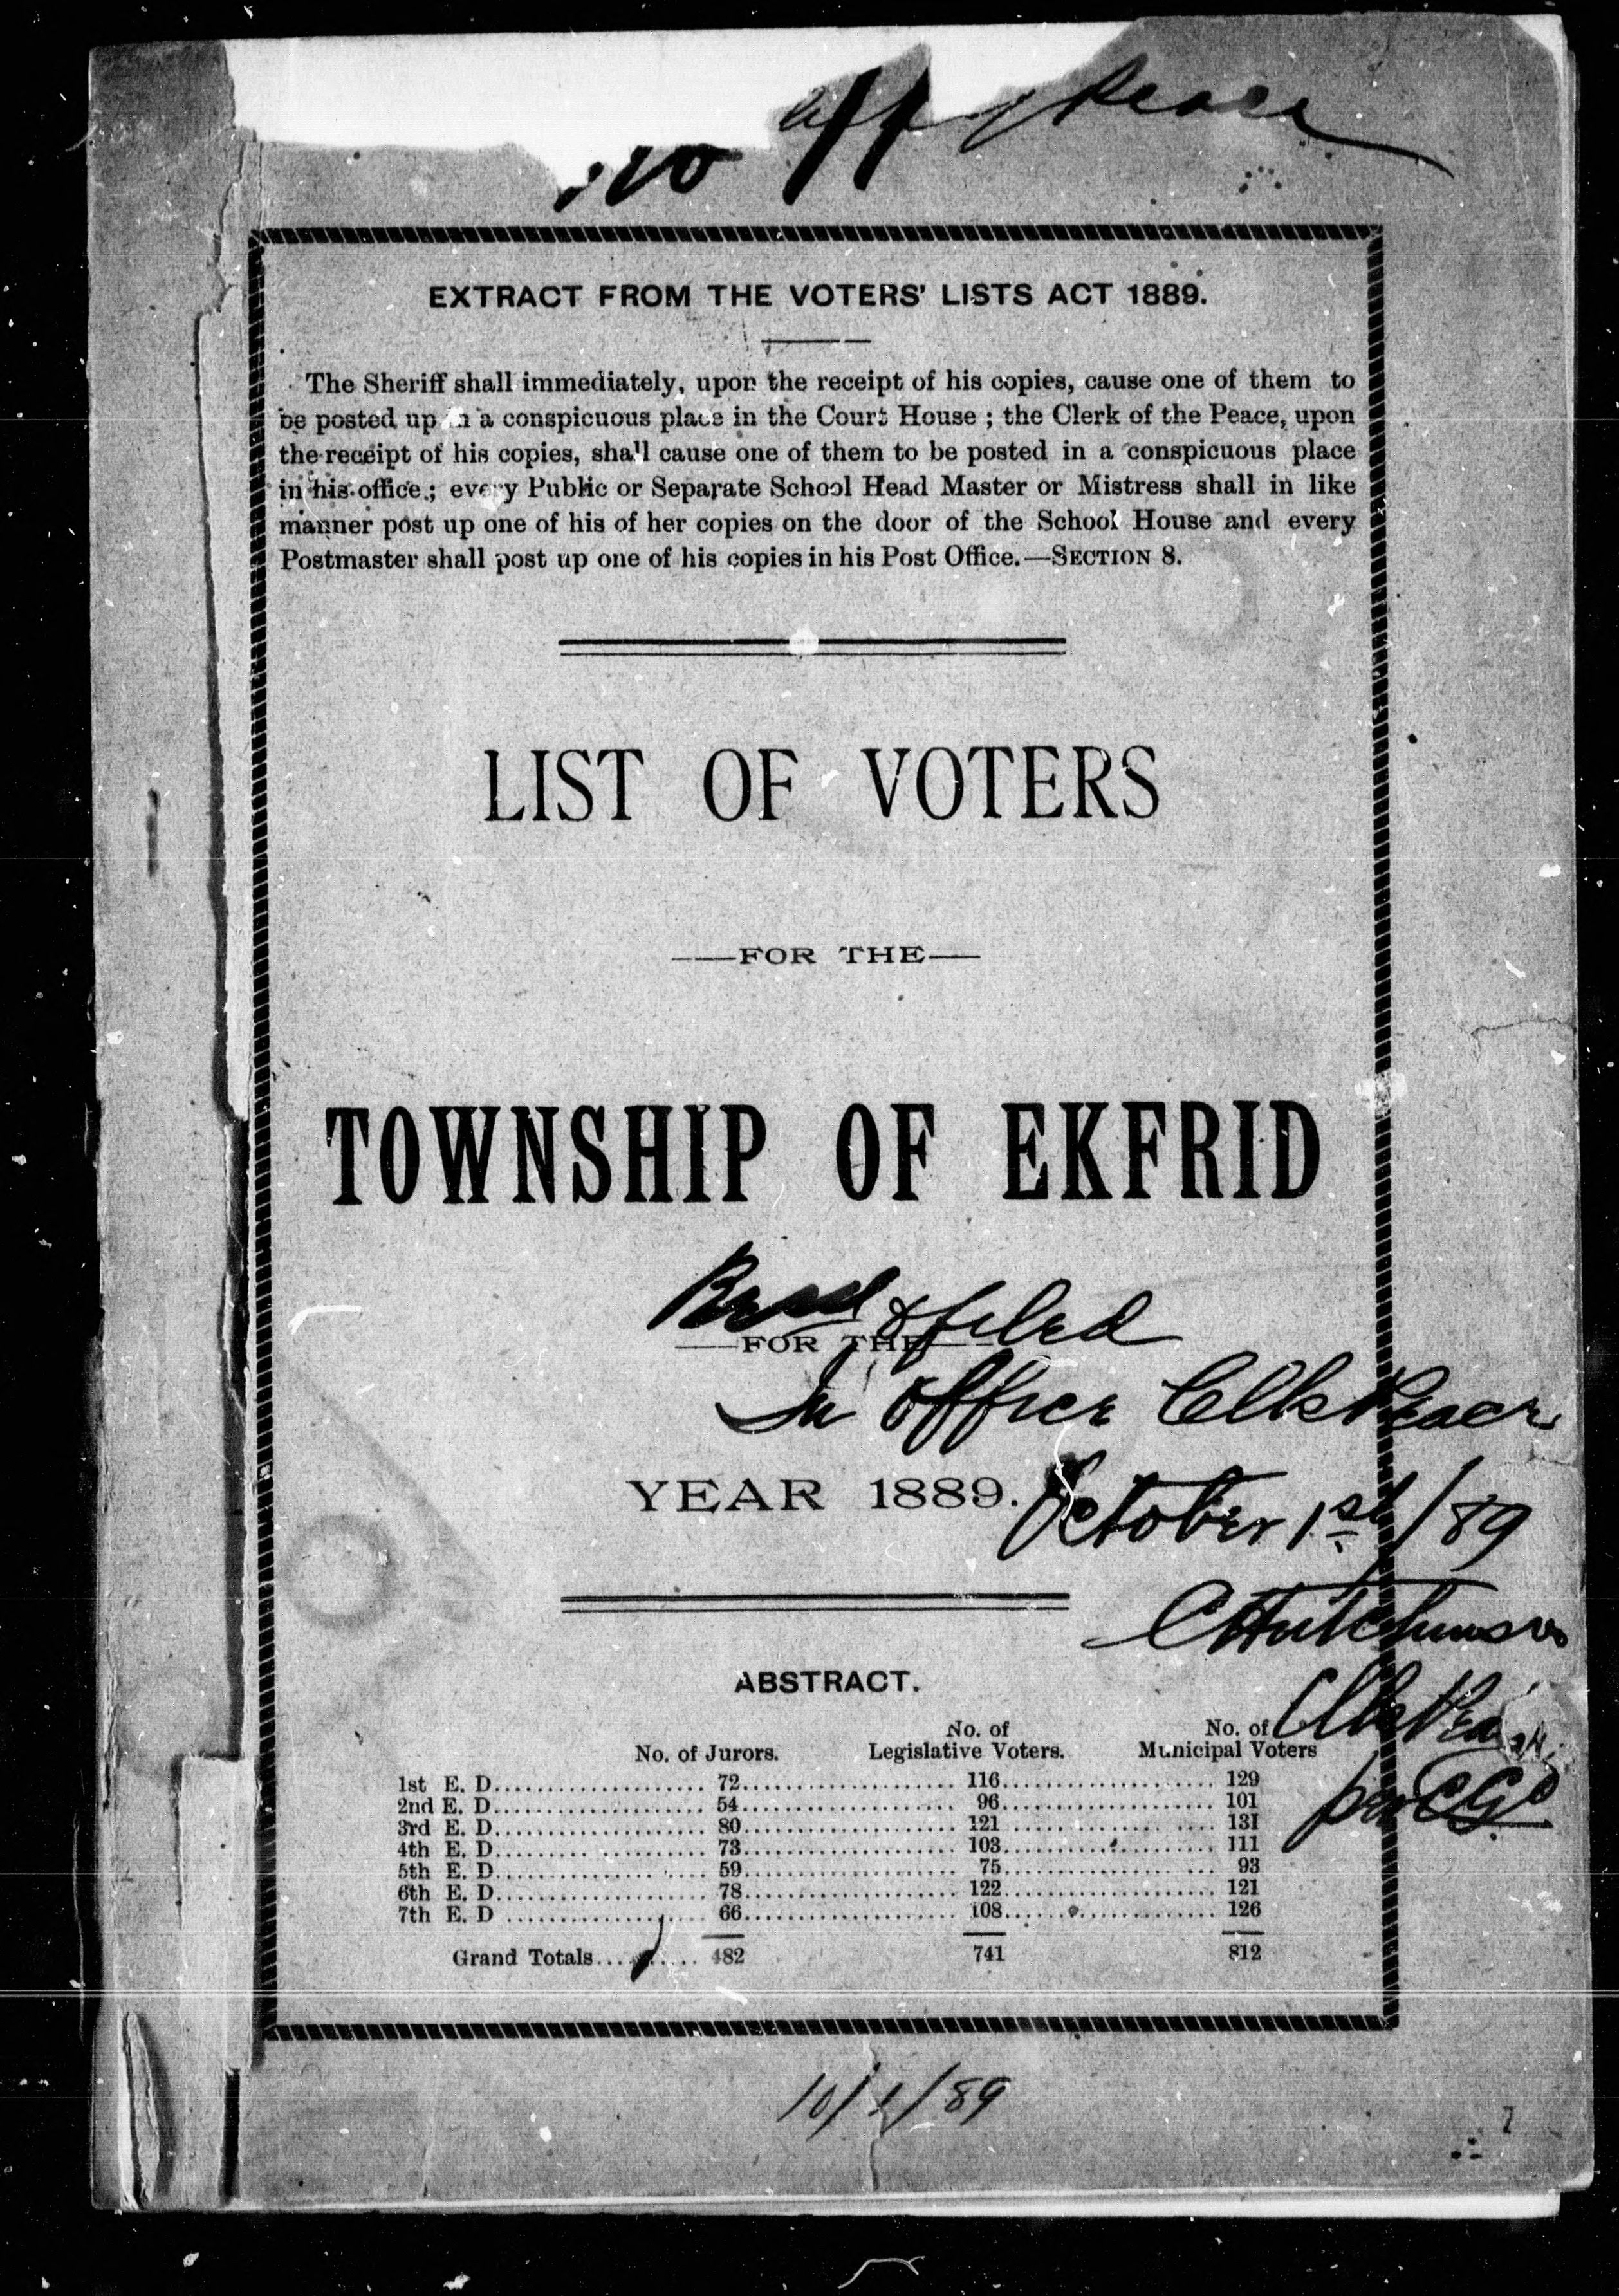 No 11 Peace
EXTRACT FROM THE VOTERS' LISTS ACT 1889.
The Sheriff shall immediately, upon the receipt of his copies, cause one of them to
be posted up in a conspicuous place in the Court House ; the Clerk of the Peace, upon
the receipt of his copies, shall cause one of them to be posted in a conspicuous place
in his office ; every Public or Separate School Head Master or Mistress shall in like
manner post up one of his of her copies on the door of the School House and every
Postmaster shall post up one of his copies in his Post Office.—SECTION 8.
LIST OF VOTERS
—FOR THE—
TOWNSHIP OF EKFRID
& filed
—FOR THE—
In Office Clk Peace
YEAR 1889.
October 1st/89
C Hutchinson
Clk Peace
per CGC
ABSTRACT.
No. of Jurors. No. of Legislative Voters. No. of Municipal Voters
1st E. D. 72 116 129
2nd E. D. 54 96 101
3rd E. D. 80 121 131
4th E. D. 73 103 111
5th E. D. 59 75 93
6th E. D. 78 122 121
7th E. D 66 108 126
Grand Totals 482 741 812
10/1/89